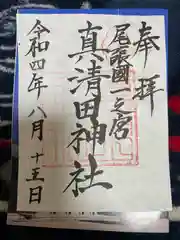 奉拝
尾張國一之宮
真清田神社
令和四年八月十五日